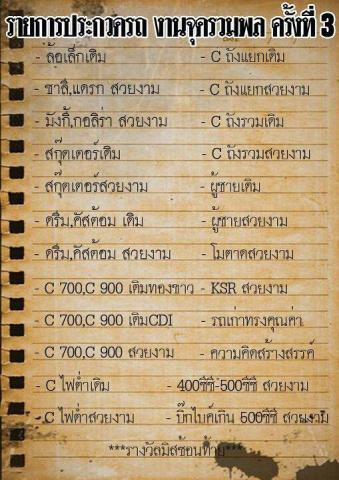 รายการประกวดรถ งานจุดรวมพล ครั้งที่ 3
- ล้อเล็กเดิม - C ถังแยกเดิม
- ชาลี,แดรก สวยงาม - C ถังแยกสวยงาม
- มังกี้,กอลิร่า สวยงาม - C ถังรวมเดิม
- สกุ๊ตเตอร์เดิม - C ถังรวมสวยงาม
- สกุ๊ตเตอร์สวยงาม - ผู้ชายเดิม
- ดรีม,คัสต้อม เดิม - ผู้ชายสวยงาม
- ดรีม,คัสต้อม สวยงาม - โมตาดสวยงาม
- C 700,C 900 เดิมทองขาว - KSR สวยงาม
- C 700,C 900 เดิมCDI - รถเก่าทรงคุณค่า
- C 700,C 900 สวยงาม - ความคิดสร้างสรรค์
- C ไฟต่ำเดิม - 400ซีซี-500ซีซี สวยงาม
- C ไฟต่ำสวยงาม - บิ๊กไบค์เกิน 500ซีซี สวยงาม
***รางวัลมิสซ้อนท้าย***